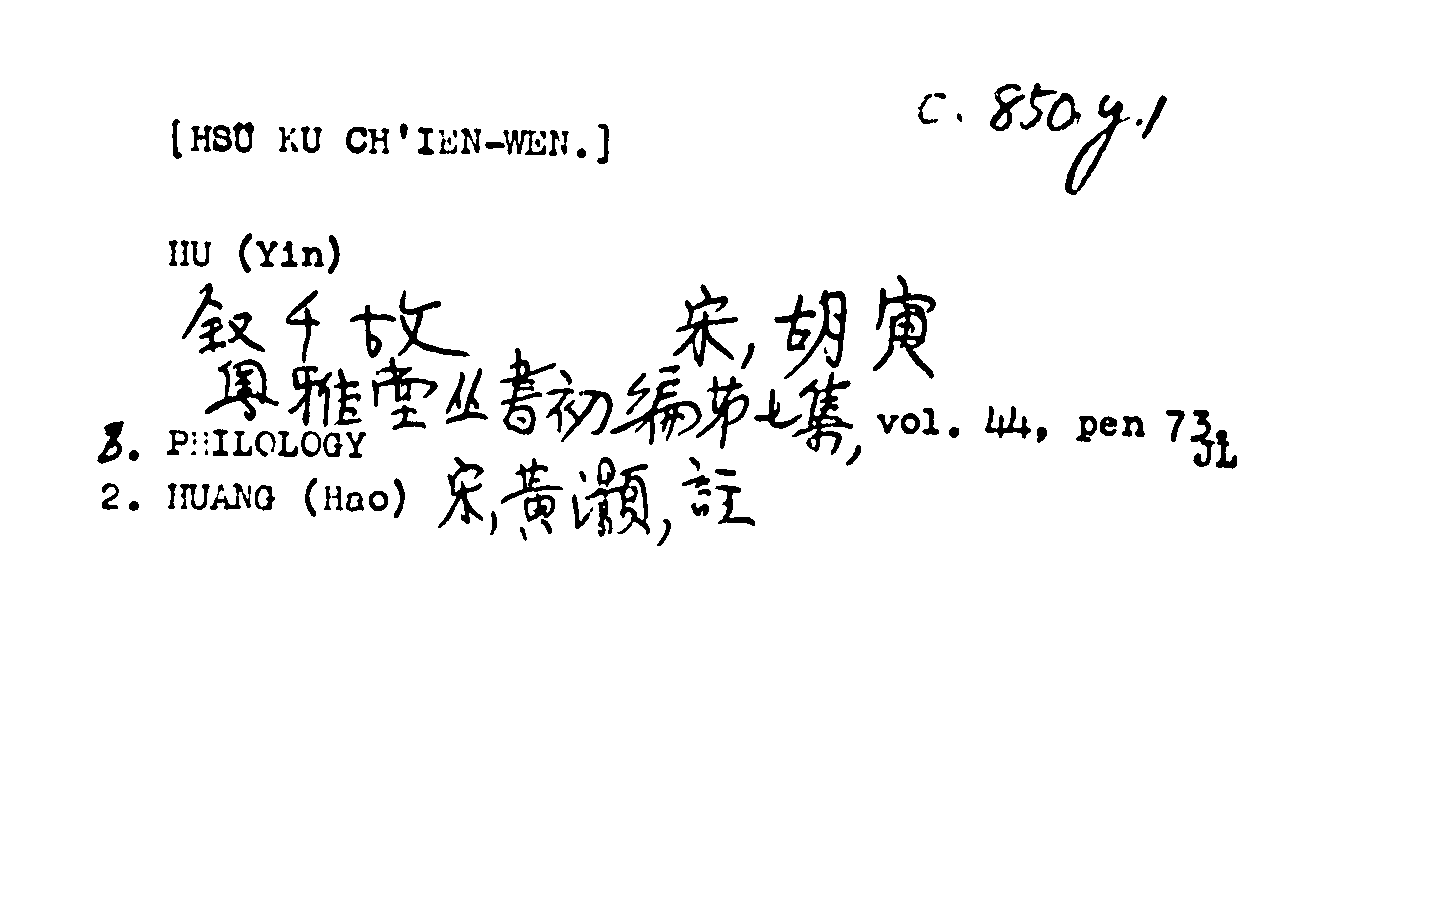 C. 850.y.1
[HSÜ KU CH'IEN-WEN.]
HU (Yin)
叙千故 宋,胡寅
粵雅堂丛書初編第七集, vol. 44, pen 73
3. PHILOLOGY
2. HUANG (Hao) 宋,黃灝,註